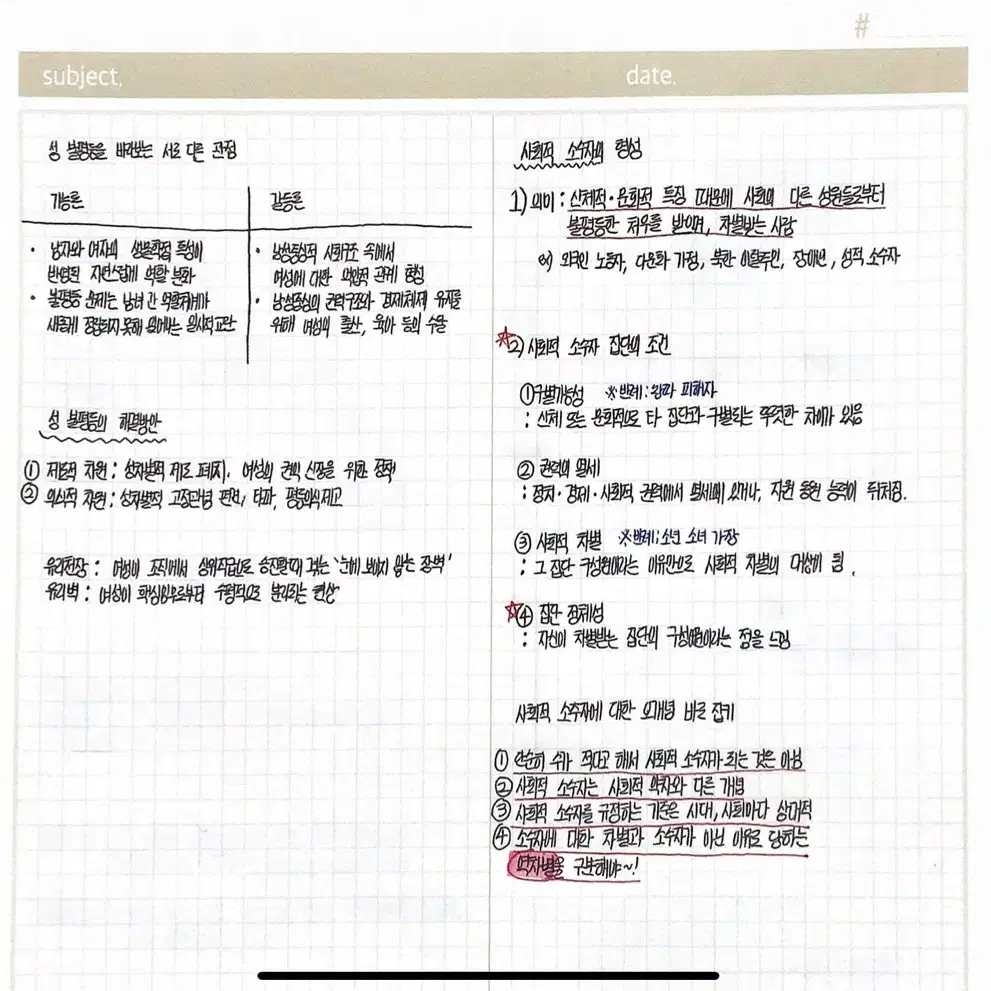 #
subject.
date.
성 불평등을 바라보는 서로 다른 관점
기능론
갈등론
· 남자와 여자의 생물학적 특성이
반영된 자연스럽게 역할 분화
· 불평등 문제는 남녀 간 역할체계가
새롭게 정립되지 못해 일시적
· 남성중심적 사회구조 속에서
여성에 대한 억압적 관계 형성
· 남성중심의 권력구조와 경제체제 유지를
위해 여성의 출산, 육아 등의 수단
성 불평등의 해결방안
① 제도적 차원 : 성차별적 제도 폐지, 여성의 권익 신장을 위한 정책
② 의식적 차원 : 성차별적 고정관념 편견, 타파, 평등의식제고
유리천장 : 여성이 조직에서 상위직급으로 승진할때 겪는 '눈에 보이지 않는 장벽'
유리벽 : 여성이 핵심업무로부터 수평적으로 분리되는 현상
사회적 소수자의 형성
1) 의미 : 신체적·문화적 특징 때문에 사회의 다른 성원들로부터
불평등한 처우를 받으며, 차별받는 사람
ex) 외국인 노동자, 다문화 가정, 북한 이탈주민, 장애인, 성적 소수자
☆2) 사회적 소수자 집단의 조건
① 구별가능성 ※반례 : 왕따 피해자
: 신체 또는 문화적으로 타 집단과 구별되는 뚜렷한 차이가 있음
② 권력의 열세
: 정치·경제·사회적 권력에서 열세에 있거나, 자원 동원 능력이 뒤처짐.
③ 사회적 차별 ※반례 : 소년 소녀 가장
: 그 집단 구성원이라는 이유만으로 사회적 차별의 대상이 됨.
☆④ 집단 정체성
: 자신이 차별받는 집단의 구성원이라는 점을 느낌
사회적 소수자에 대한 오개념 바로 잡기
① 단순히 수가 적다고 해서 사회적 소수자가 되는 것은 아님
② 사회적 소수자는 사회적 약자와 다른 개념
③ 사회적 소수자를 규정하는 기준은 시대, 사회마다 상대적
④ 소수자에 대한 차별과 소수자가 아닌 이유로 당하는
역차별을 구분해야~!